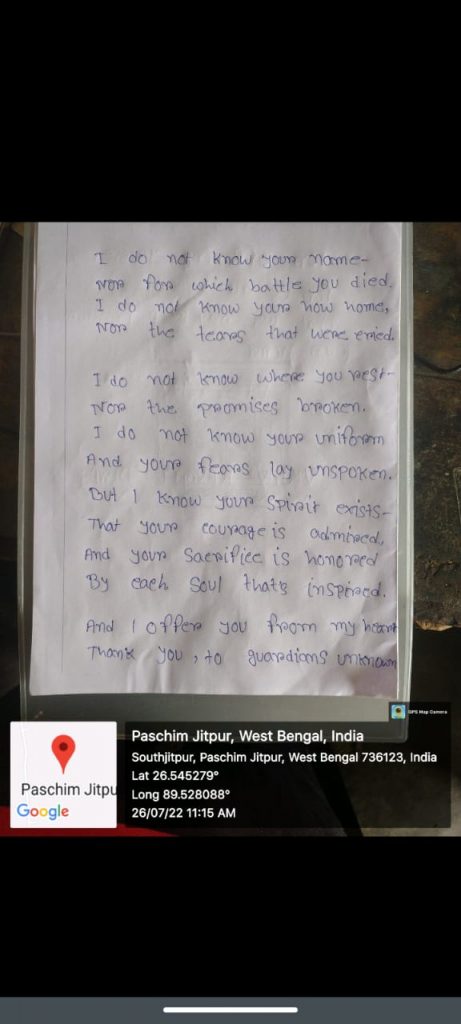 I do not know your name-
Nor for which battle you died.
I do not know your how home,
Nor the tears that were cried.
I do not know where you rest-
Nor the promises broken.
I do not know your uniform
And your fears lay unspoken.
But I know your spirit exists-
That your courage is admired,
And your Sacrifice is honored
By each Soul that's inspired.
And I offer you from my heart
Thank you, to guardians unknown
GPS Map Camera
Paschim Jitpur, West Bengal, India
Southjitpur, Paschim Jitpur, West Bengal 736123, India
Lat 26.545279°
Long 89.528088°
26/07/22 11:15 AM
Paschim Jitpu
Google